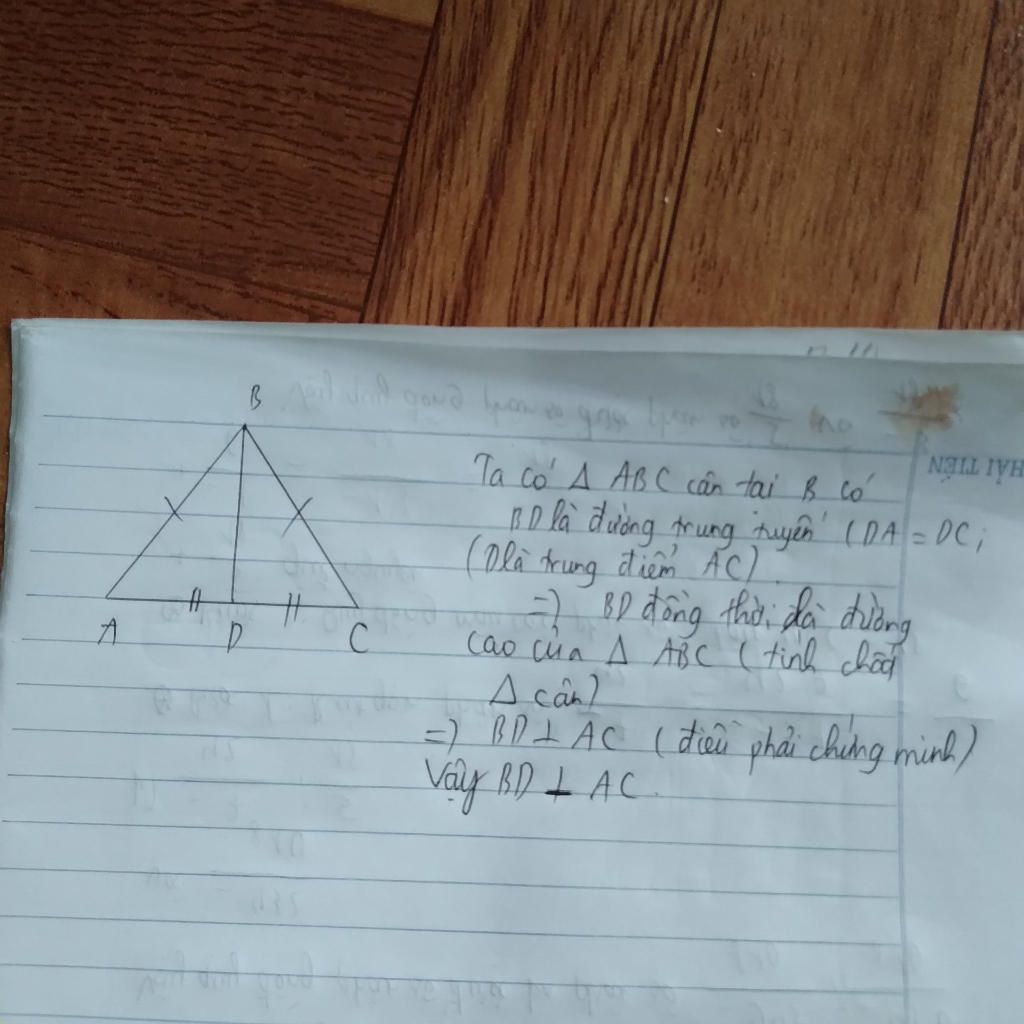 B
A D C
Ta có Δ ABC cân tại B có
BD là đường trung tuyến (DA = DC;
(D là trung điểm AC)
=> BD đồng thời là đường
cao của Δ ABC (tính chất
Δ cân)
=> BD ⊥ AC (điều phải chứng minh)
Vậy BD ⊥ AC.
HẢI TIẾN